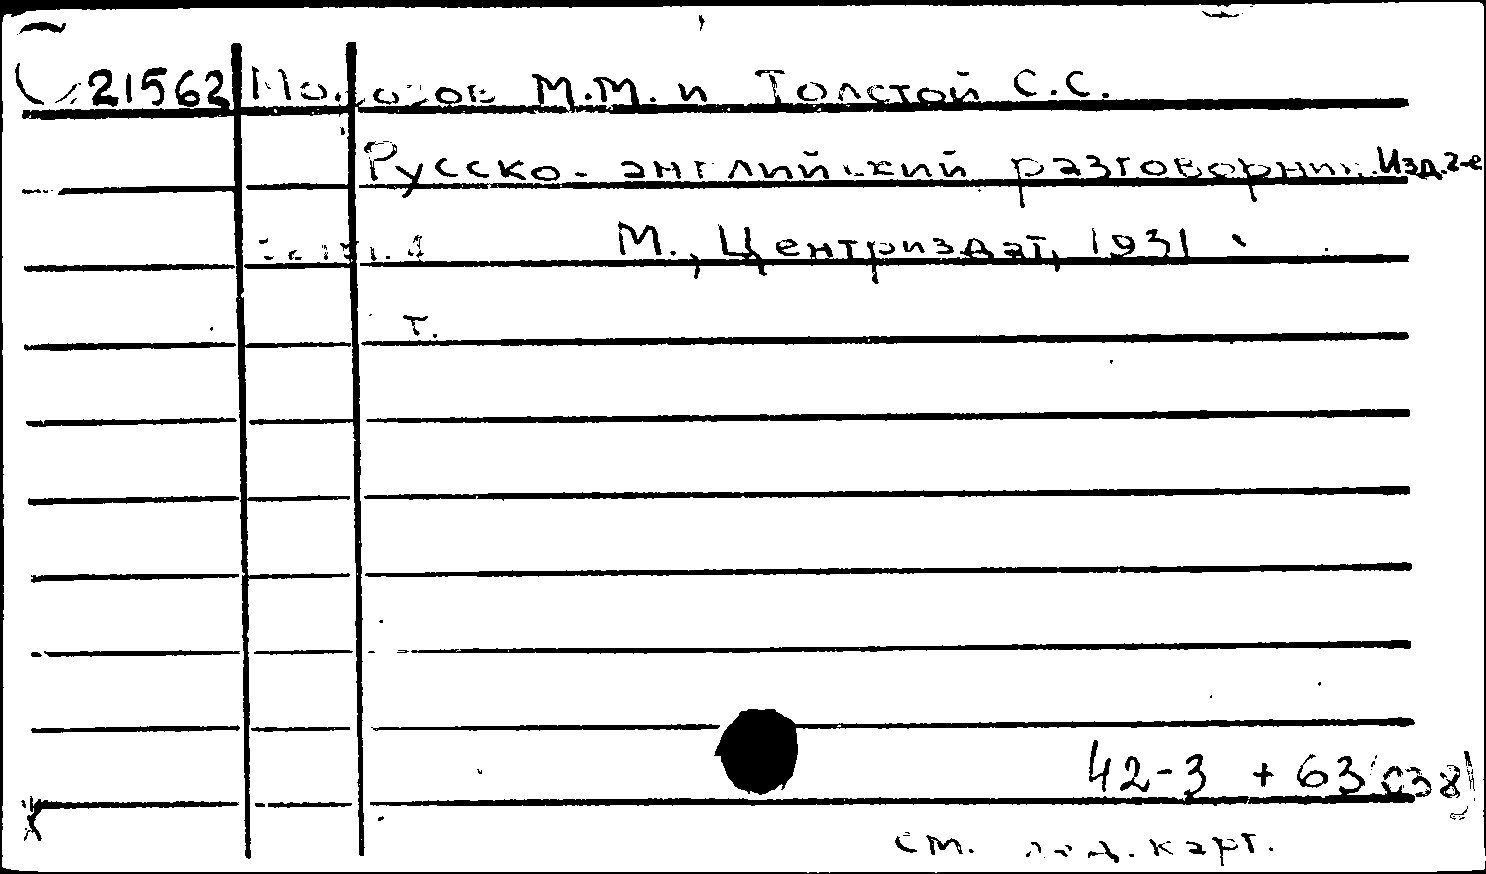 21562 М.М. и Толстой С.С.
Русско-английский разговорник. Изд. 2-е
М., Центриздат, 1931
т.
42-3 + 63(038)
см. карт.